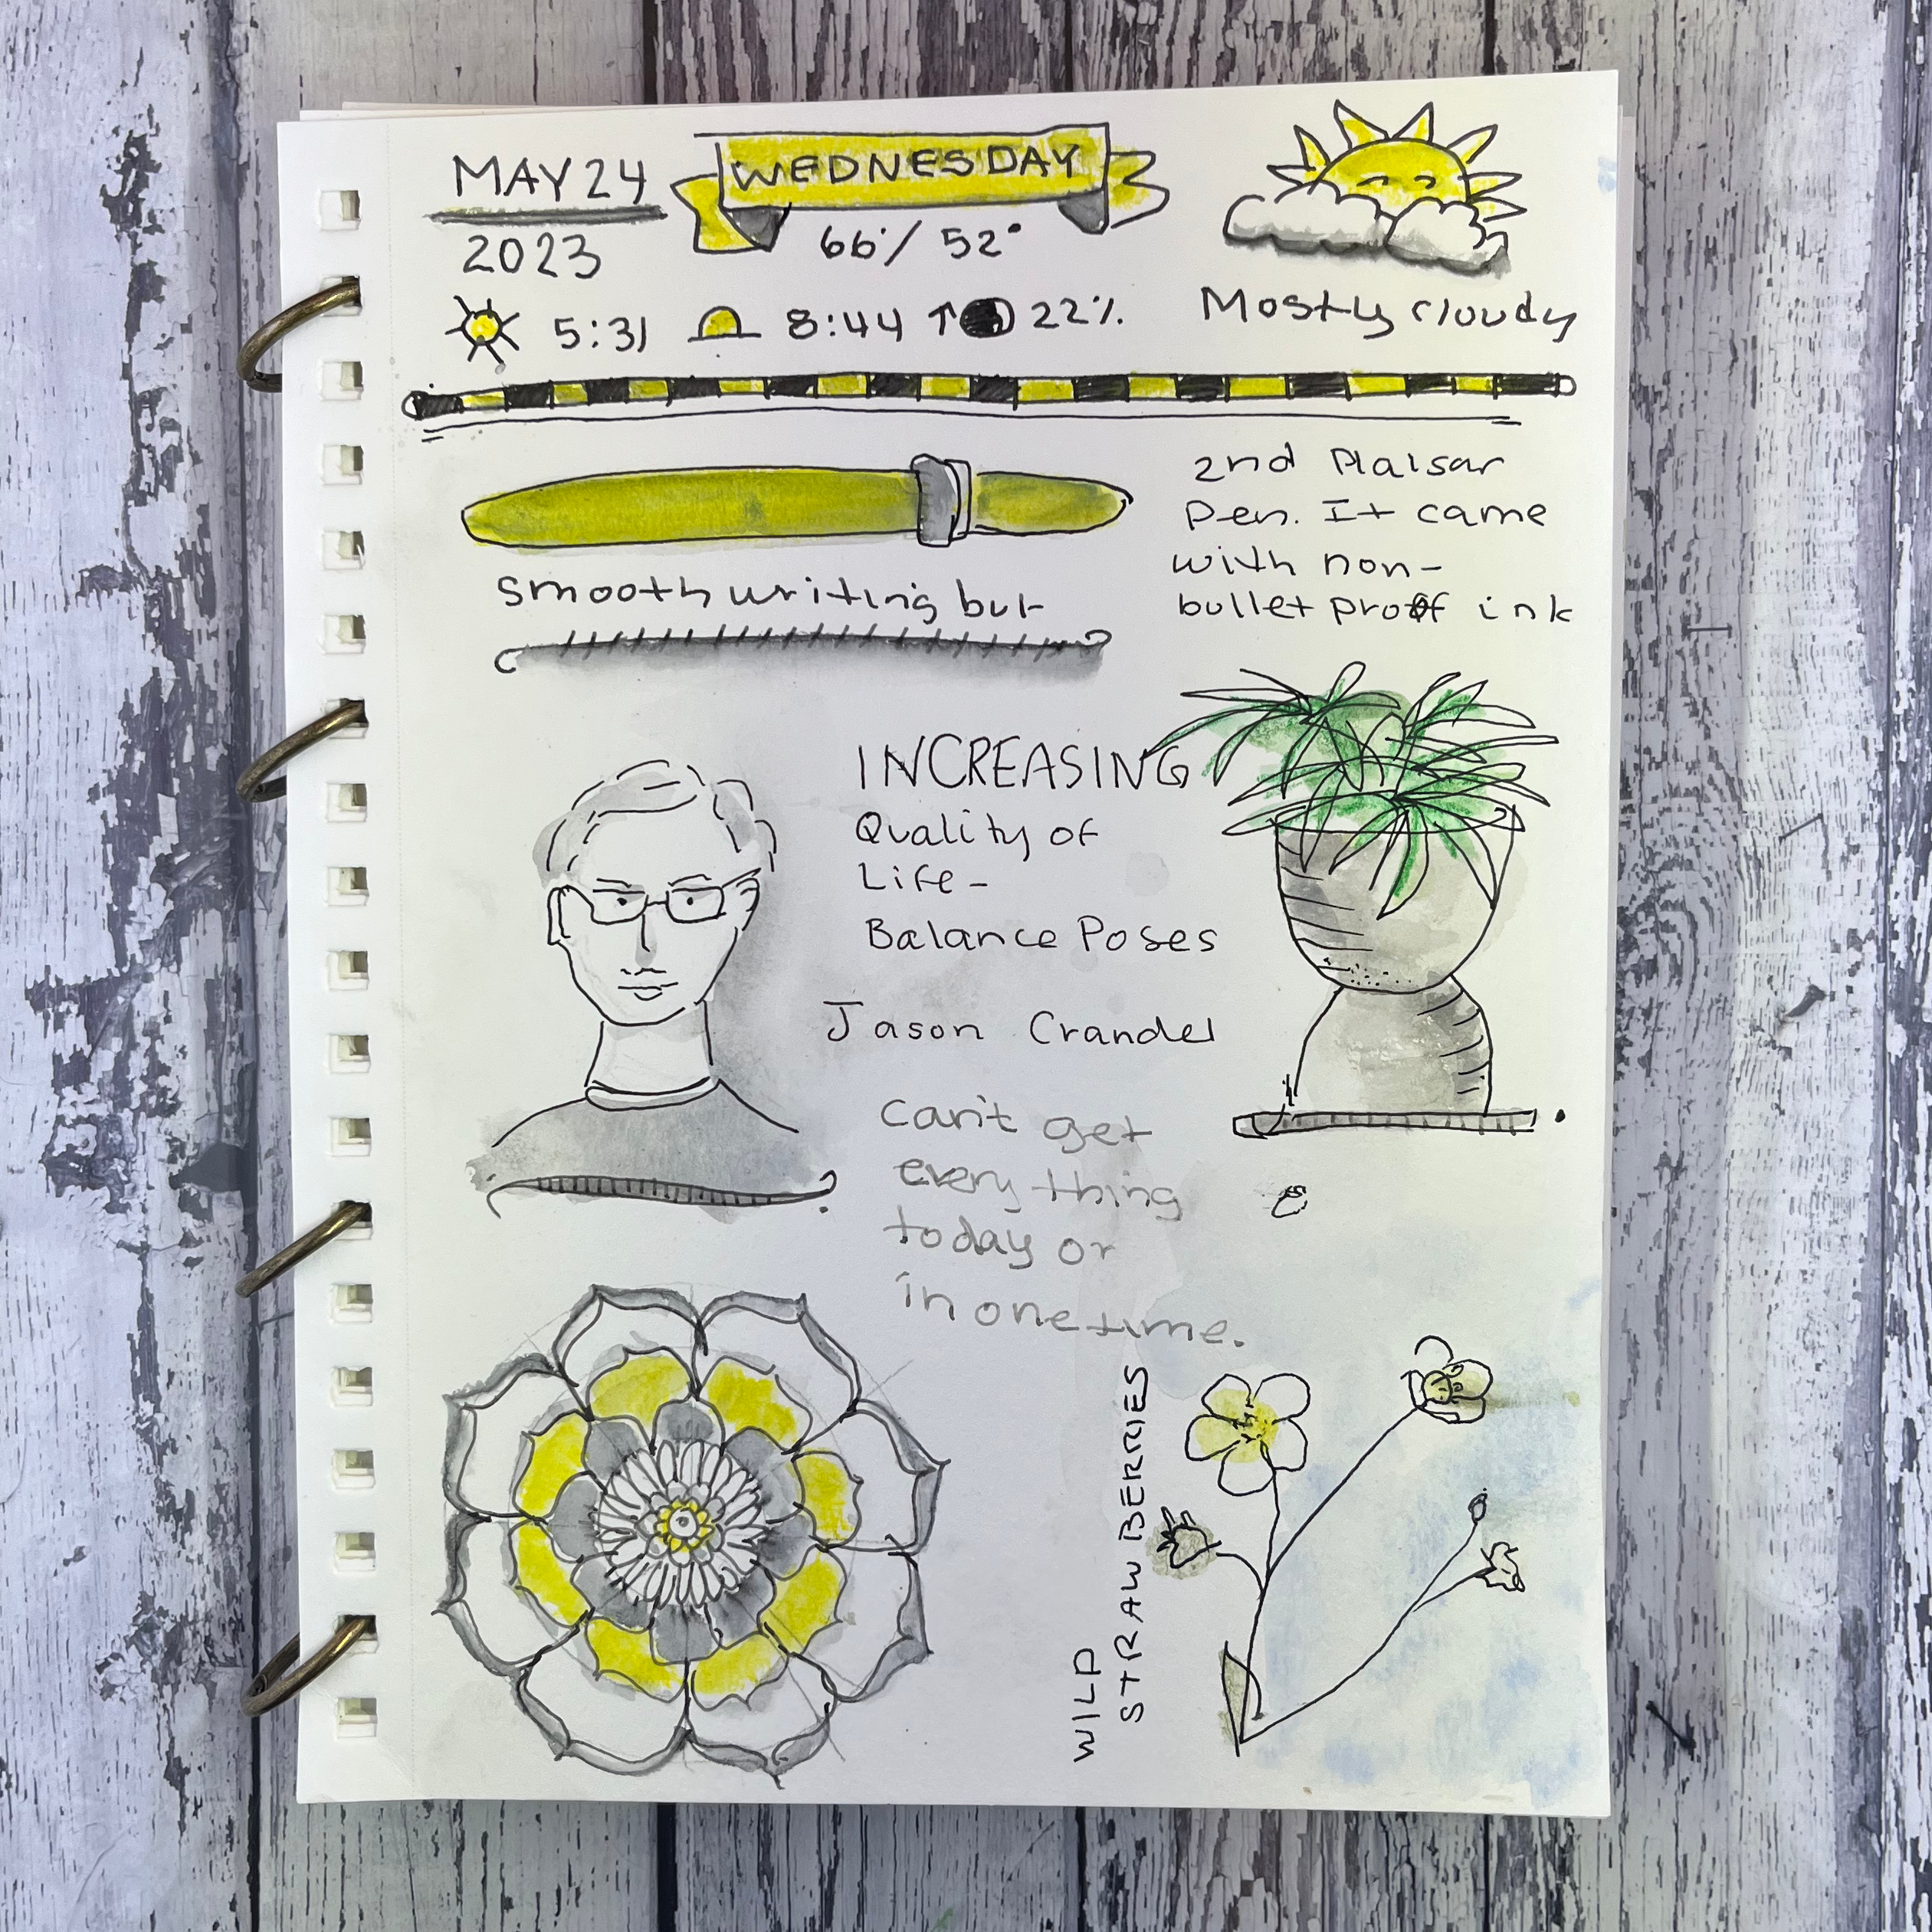 MAY 24
2023
WEDNESDAY
66°/ 52°
5:31 8:44 ↑ 22%
Mostly cloudy
2nd Plaisar
Pen. It came
with non-
bullet proof ink
smooth writing but
INCREASING
Quality of
Life-
Balance Poses
Jason Crandel
Can't get
every thing
today or
in one time.
WILD
STRAWBERRIES